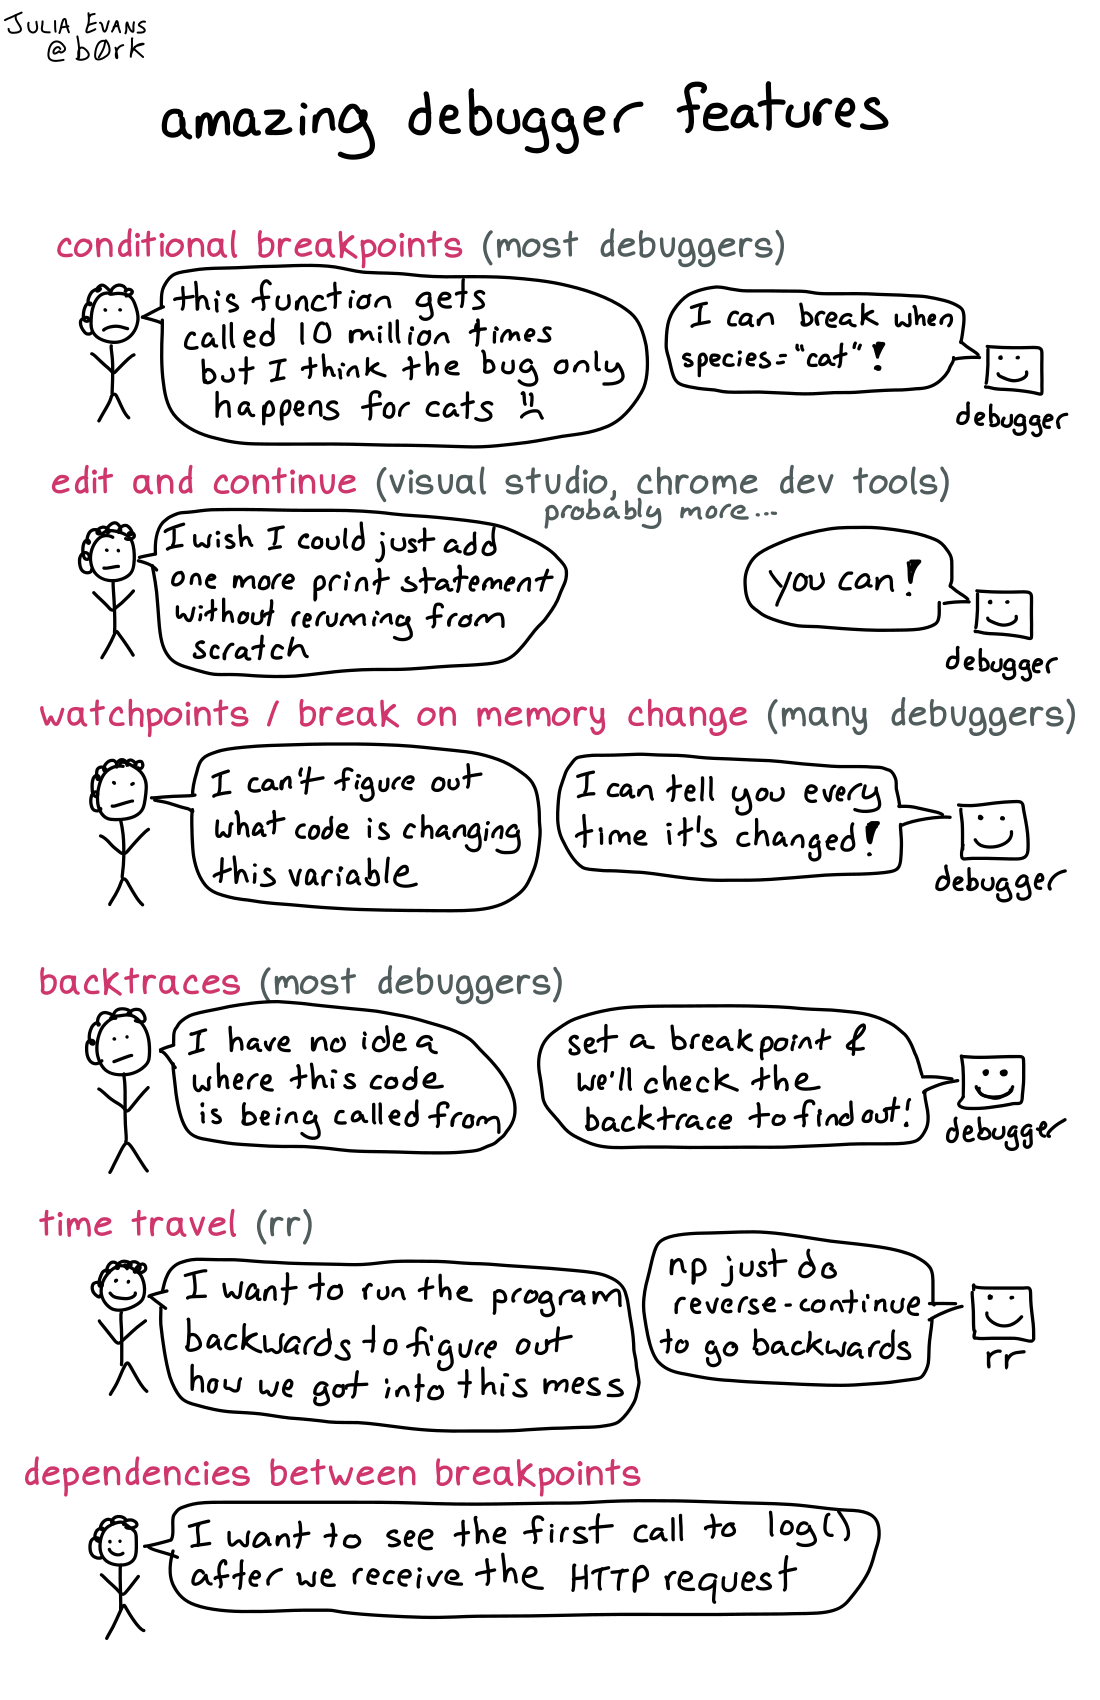 JULIA EVANS
@b0rk
amazing debugger features
conditional breakpoints (most debuggers)
this function gets
called 10 million times
but I think the bug only
happens for cats :(
I can break when
species="cat"!
debugger
edit and continue (visual studio, chrome dev tools)
probably more...
I wish I could just add
one more print statement
without rerunning from
scratch
you can!
debugger
watchpoints / break on memory change (many debuggers)
I can't figure out
what code is changing
this variable
I can tell you every
time it's changed!
debugger
backtraces (most debuggers)
I have no idea
where this code
is being called from
set a breakpoint &
we'll check the
backtrace to find out!
debugger
time travel (rr)
I want to run the program
backwards to figure out
how we got into this mess
np just do
reverse-continue
to go backwards
rr
dependencies between breakpoints
I want to see the first call to log()
after we receive the HTTP request